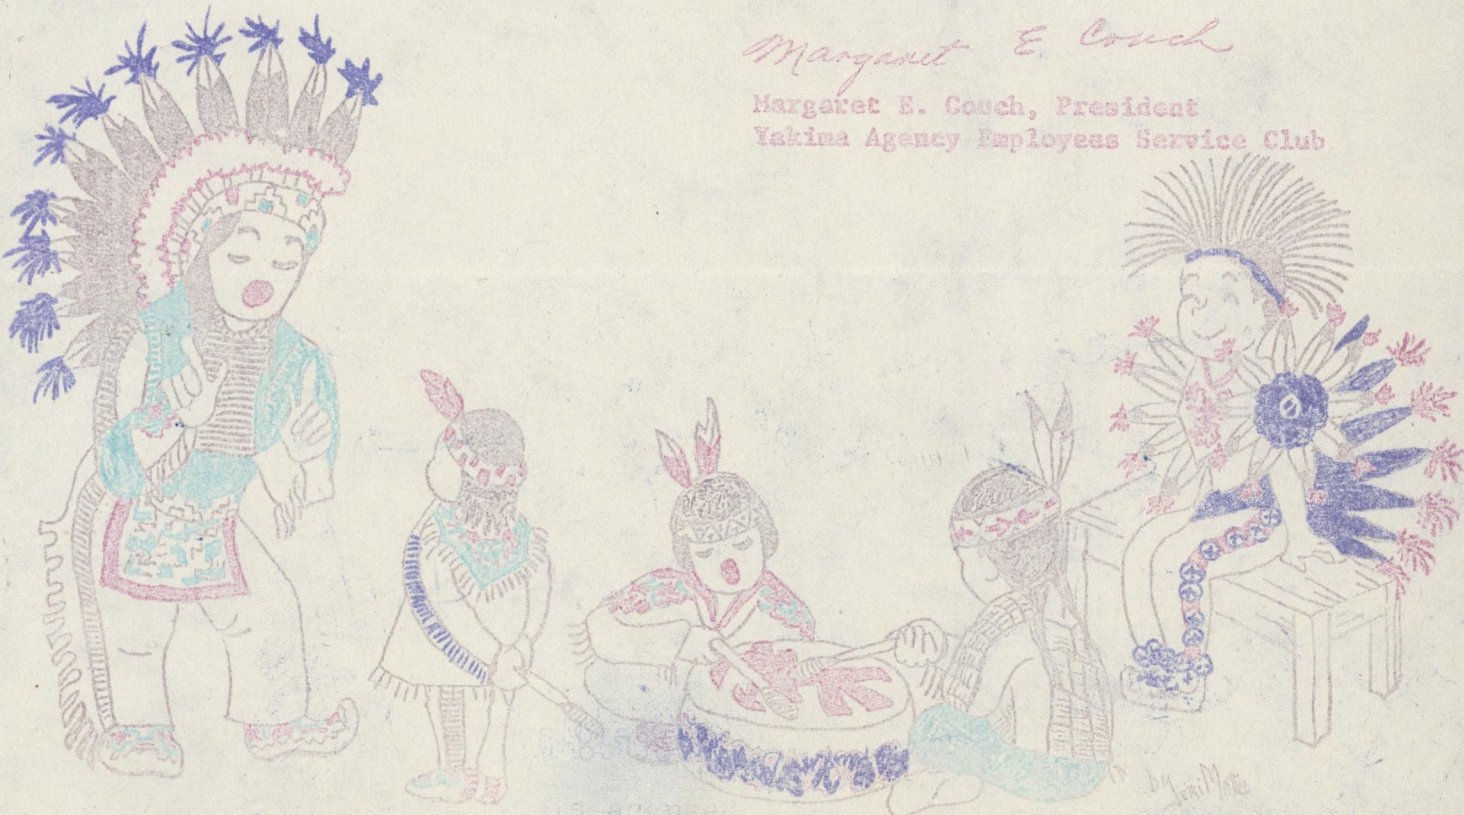 Margaret E. Couch
Margaret E. Couch, President
Yakima Agency Employees Service Club
by